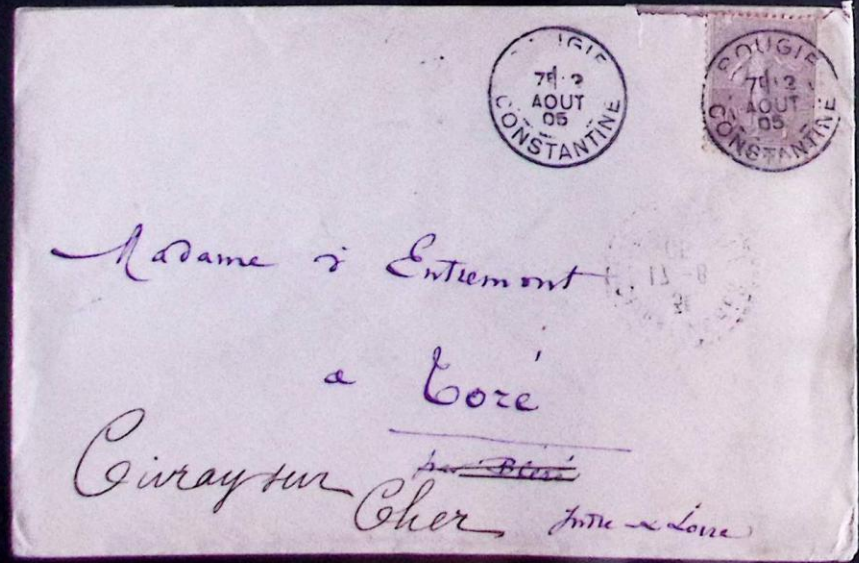 BOUGIE
7E 2
AOUT
05
CONSTANTINE
BOUGIE
7E 2
AOUT
05
CONSTANTINE
Madame d'Entremont
a Toré
par Bléré
Civray sur
Cher
Indre et Loire
17-8